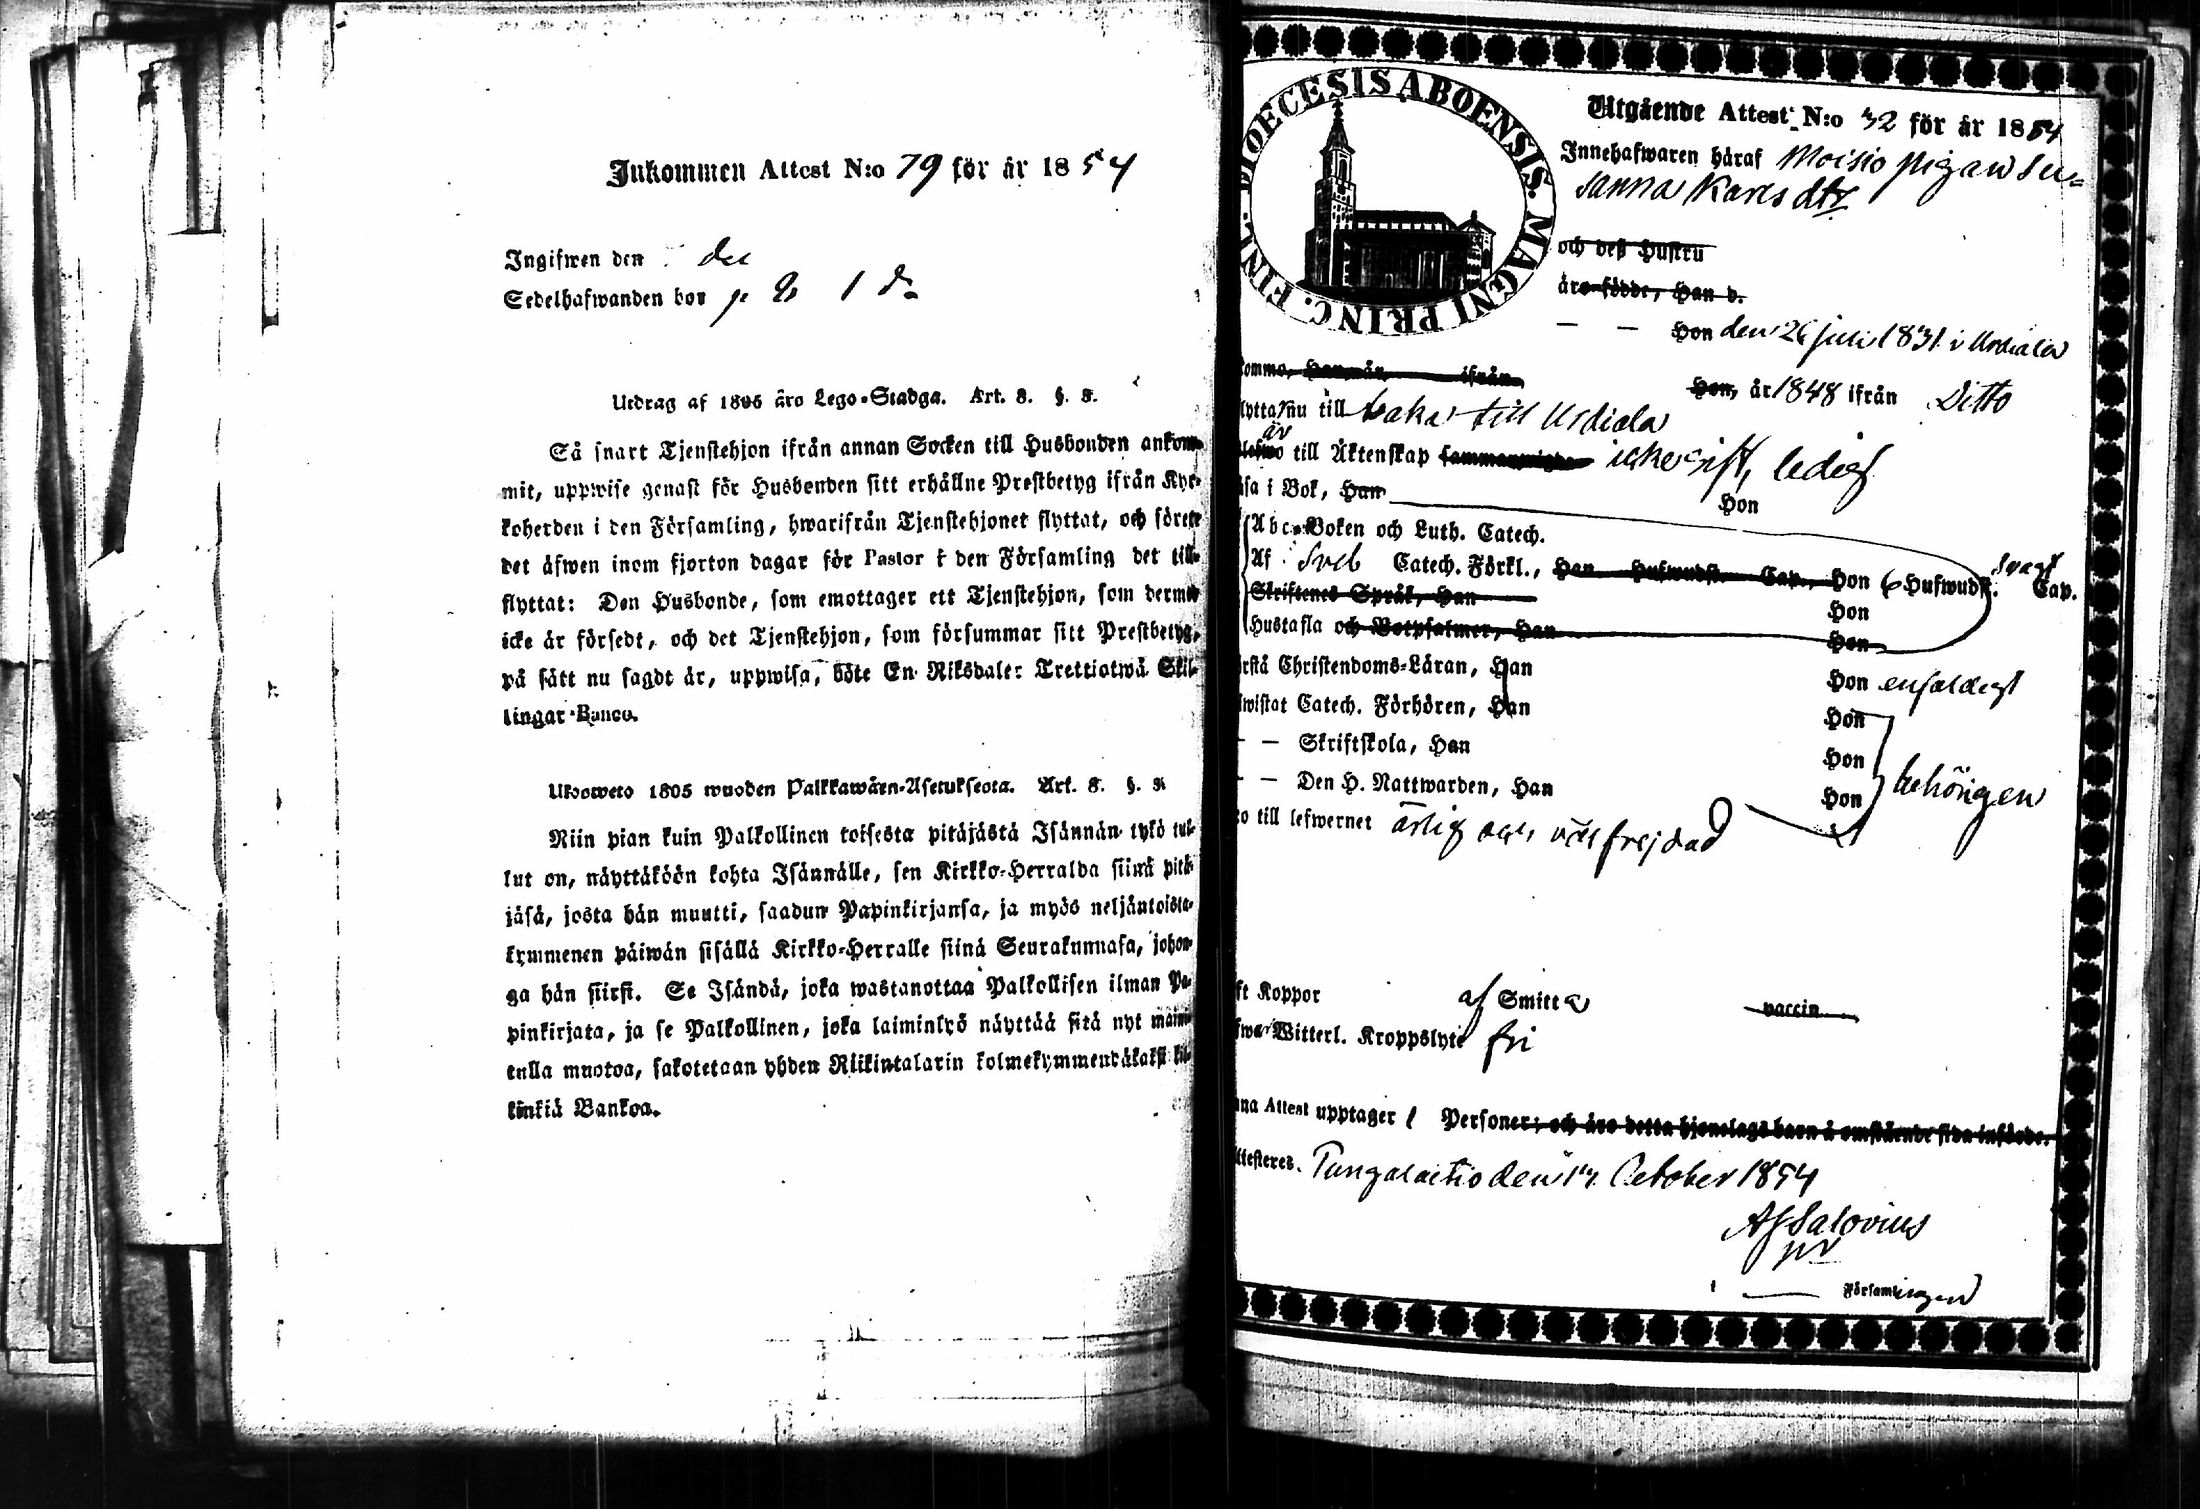 Inkommen Attest N:o 79 för år 1854
Ingifwen den
Sedelhafwanden bor
Utdrag af 1805 års Lego-Stadga. Art. 8. §. 8.
Så snart Tjenstehjon ifrån annan Socken till Husbonden ankom-
mit, uppwise genast för Husbonden sitt erhållne Prestbetyg ifrån Kyr-
koherden i den Församling, hwarifrån Tjenstehjonet flyttat, och förete
det äfwen inom fjorton dagar för Pastor i den Församling det till-
flyttat: Den Husbonde, som emottager ett Tjenstehjon, som dermed
icke är försedt, och det Tjenstehjon, som försummar sitt Prestbetyg,
på sätt nu sagdt är, uppwisa, böte En Riksdaler Trettiotwå Skil-
lingar Banco.
Ulosweto 1805 wuoden Palkkawäen-Asetuksesta. Art. 8. §. 8.
Niin pian kuin Palkollinen toisesta pitäjästä Isännän tykö tul-
lut on, näyttäköön kohta Isännälle, sen Kirkko-Herralda siinä pitä-
jäsä, josta hän muutti, saadun Papinkirjansa, ja myös neljäntoista-
kymmenen päiwän sisällä Kirkko-Herralle siinä Seurakunnasa, johon-
ga hän siirsi. Se Isändä, joka wastanottaa Palkollisen ilman Pa-
pinkirjata, ja se Palkollinen, joka laiminlyö näyttää sitä nyt maini-
tulla muotoa, sakotetaan yhden Riikintalarin kolmekymmendäkaksi kil-
linkiä Bankoa.
FINL. DIOECESIS ABOENSIS. MAGNI PRINC.
Utgående Attest N:o 32 för år 1854
Innehafwaren häraf Moisio pigan Su-
sanna Karlsdtr
och deß Hustru
äro födde, Han d.
— — Hon den 26 juli 1831 i Urdiala
komme, Han, år ifrån
Hon, år 1848 ifrån Ditto
flytta nu till baka till Urdiala
är
till Äktenskap icke gift, ledig
läsa i Bok, Han
Hon
Abc-Boken och Luth. Catech.
Af Sveb Catech. Förkl., Han Hufwudst. Cap., Hon 6 Hufwudst. svagt Cap.
Skriftenes Språk, Han Hon
Hustafla och Botpsalmer, Han Hon
förstå Christendoms-Läran, Han Hon enfaldigt
bewistat Catech. Förhören, Han Hon
— — Skriftskola, Han Hon
— — Den H. Nattwarden, Han Hon behörigen
till lefwernet ärlig och väl frejdad
haft Koppor af Smitta vaccin
Witterl. Kroppslyte fri
Denna Attest upptager 1 Personer; och äro detta hjonelags barn å omstående sida införde.
Attesteres. Tungalaitio den 14 October 1854
AfSalovius
Församlingen